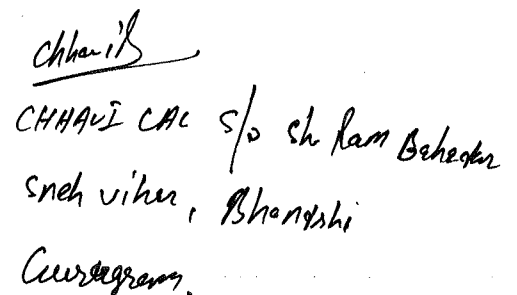 Chhavil
CHHAVI LAL S/o Sh Ram Bahadur
Sneh vihar, Bhondshi
Gurugram.